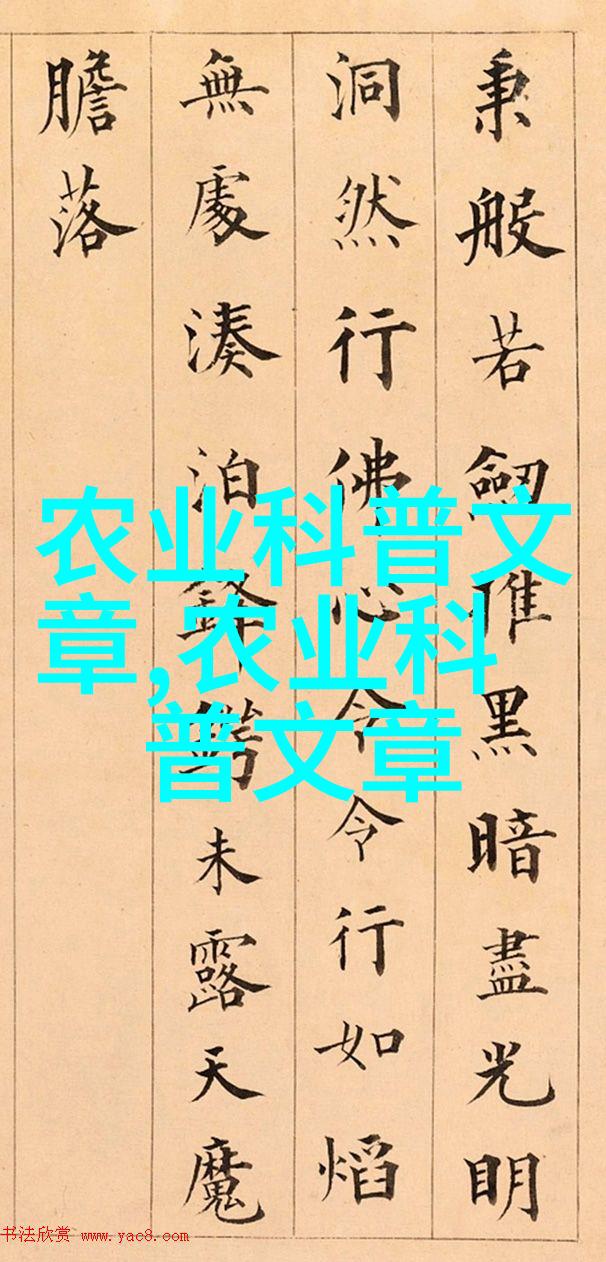 秉般若劔黑暗盡光明
洞然行佛心令令行如熖
無處湊泊鋒鍔未露天魔
膽落
农业科普文
章,农业科
普文章
书法欣赏 www.yac8.com